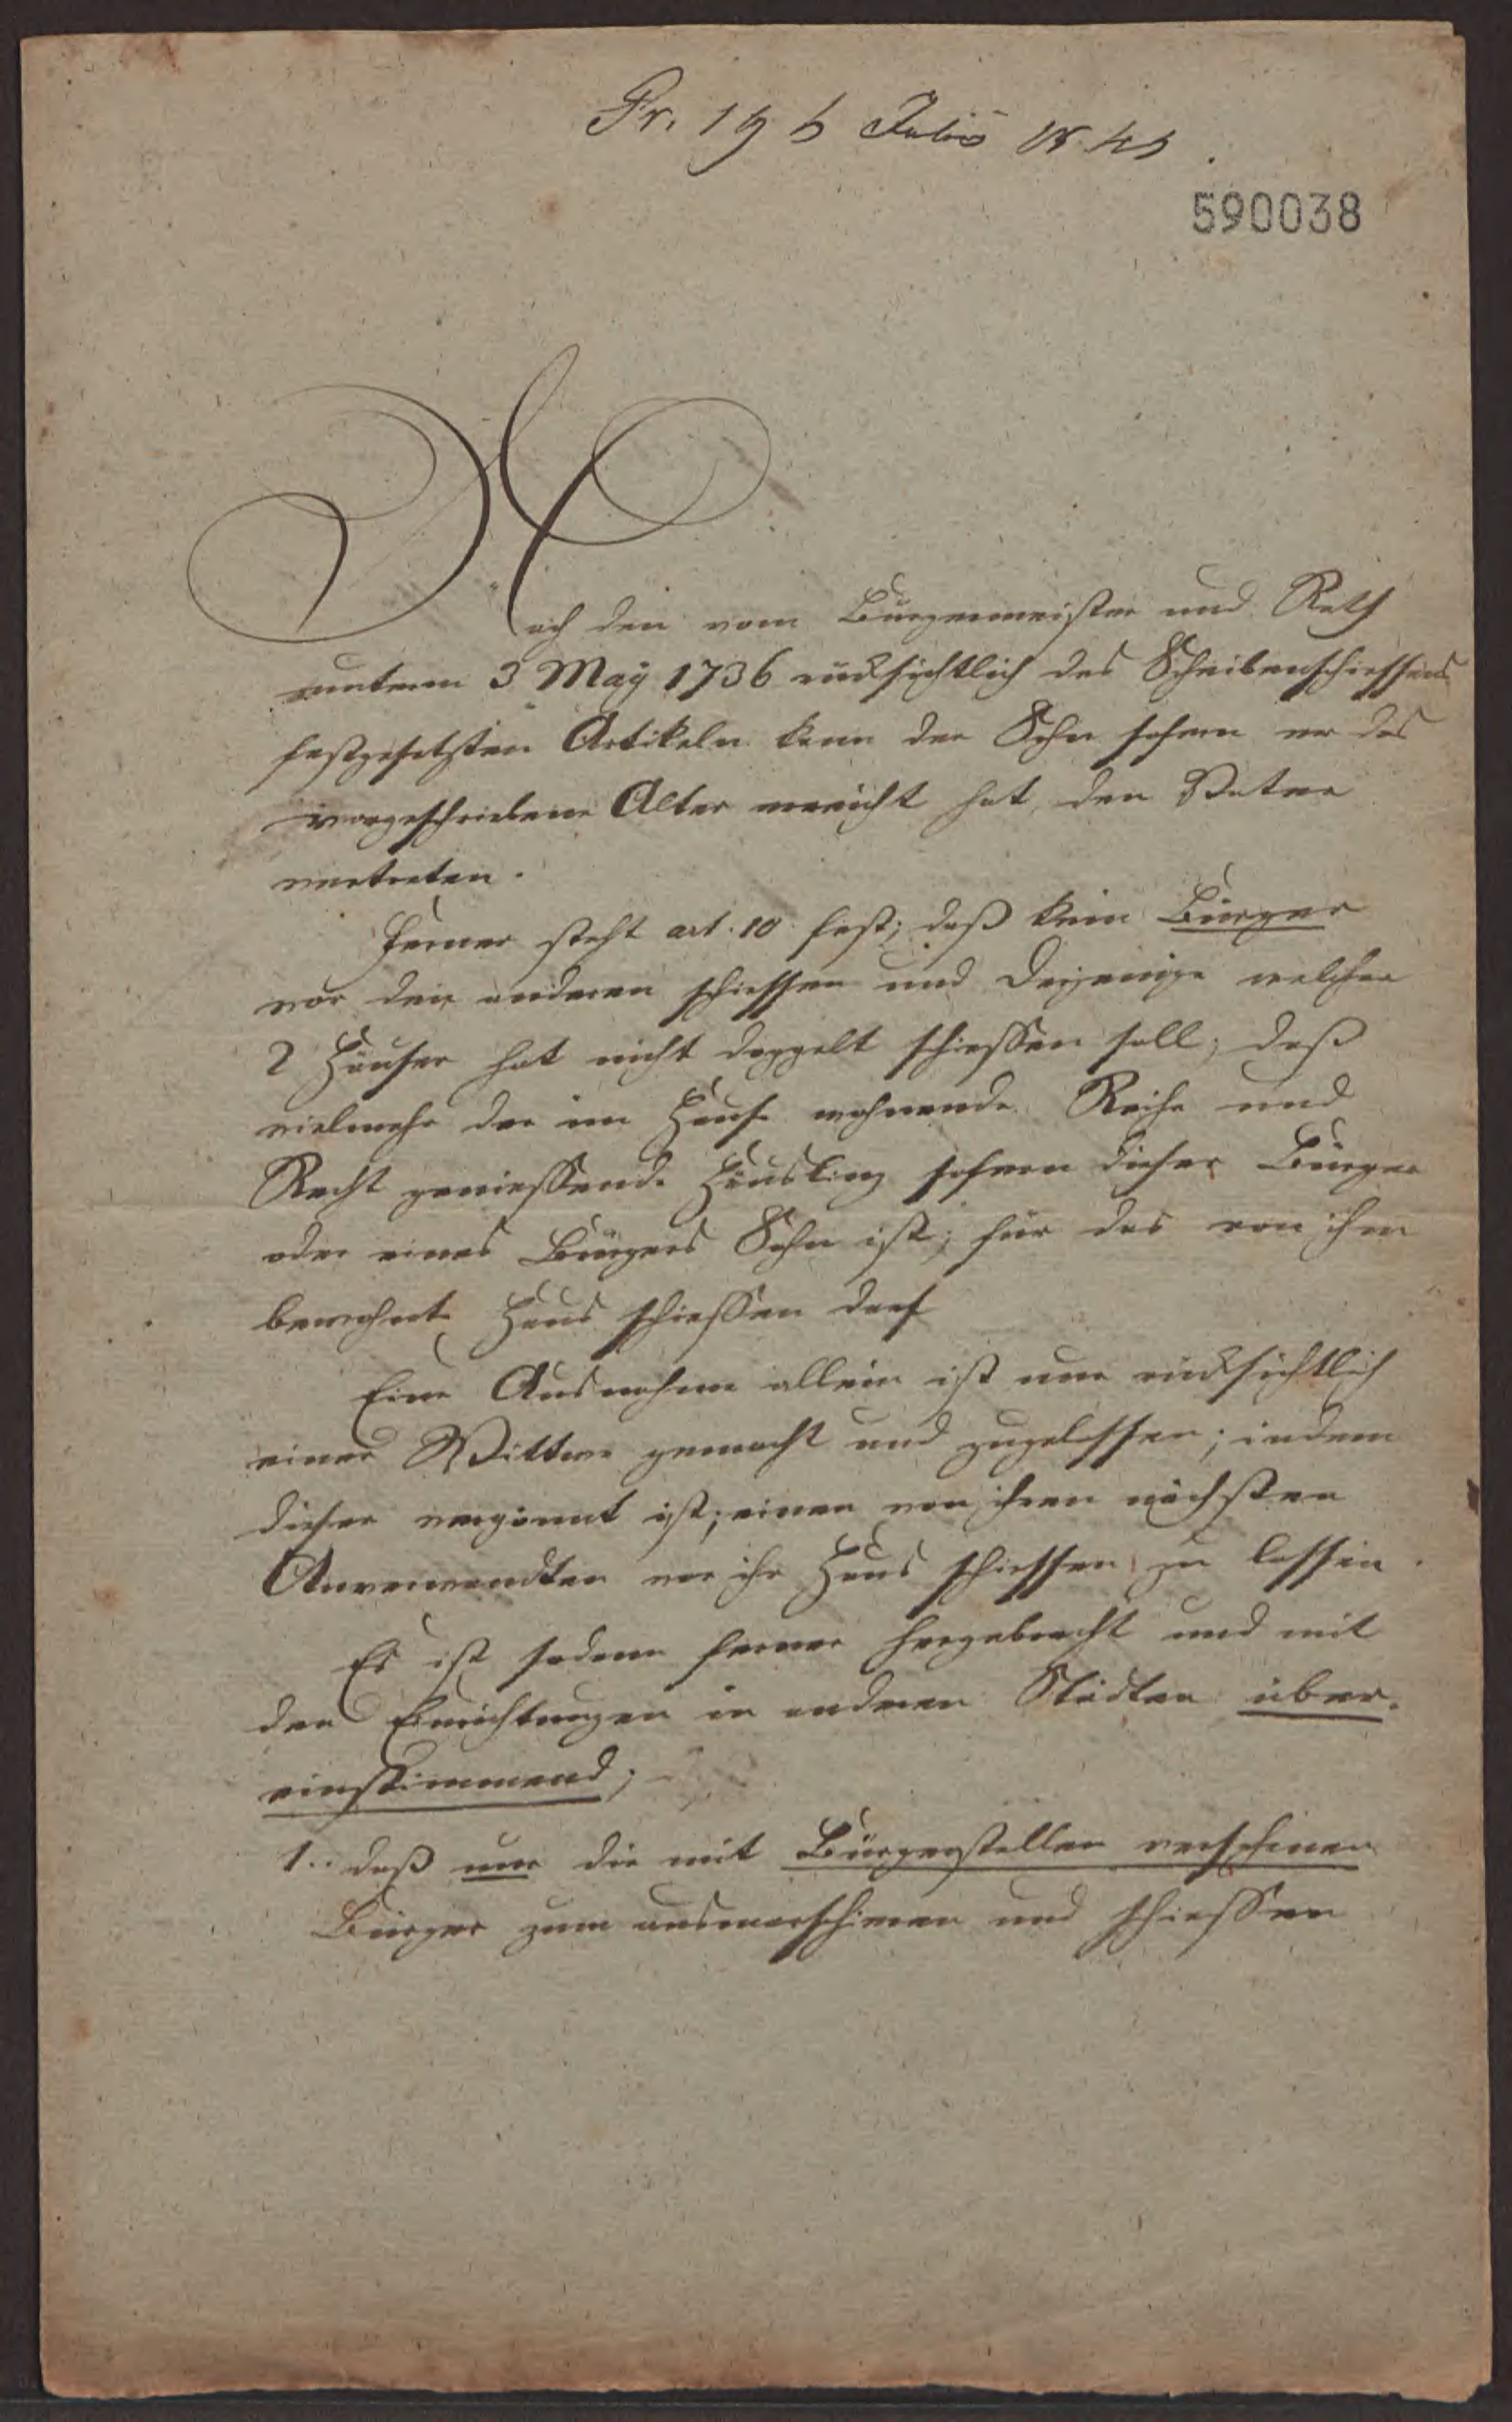 Pr. 19 Julius 1843
590038
Nach den vom Burgermeister und Rath
unterm 3 Maÿ 1736 rücksichtlich des Scheibenschiessens
festgesetzten Artikeln kann der Sohn sofern er das
vorgeschriebene Alter erreicht hat, den Vater
vertreten.
Ferner steht art. 10 fest; daß kein Bürger
vor den anderen schiessen und derjenige welcher
2 Häuser hat nicht doppelt schiessen soll; daß
vielmehr der im Hause wohnende Reihe und
Recht geniessende Häusling sofern dieser Bürger
oder eines Bürgers Sohn ist; für das von ihm
bewohnte Haus schiessen darf
Eine Ausnahme allein ist nur rücksichtlich
einer Wittwe gemacht und zugelassen; indem
dieser vergönnt ist; einen von ihren nächsten
Anverwandten vor ihr Haus schiessen zu lassen.
Es ist sodann ferner hergebracht und mit
den Einrichtungen in anderen Städten über-
einstimmend;
1. daß nur die mit Bürgerstellen versehenen
Bürger zum ausmarschiren und schiessen